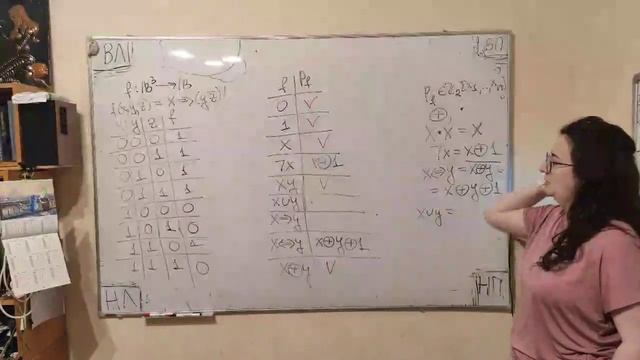 ВЛ
ВП
f: B³ → B
f(x,y,z) = x ⇒ (yz)'
y z f
0 0 0 1
0 0 1 1
0 1 0 1
0 1 1 1
1 0 0 1
1 0 1 0
1 1 0 1
1 1 1 0
f | P_f
0 | V
1 | V
x | V
7x | x⊕1
xy | V
x∪y
x⇒y
x⇔y | x⊕y⊕1
x⊕y | V
P_f ∈ Z₂[x₁,...,xₙ]
⊕, ·
x·x = x
7x = x⊕1
x⇔y = x⊕y =
= x⊕y⊕1
x∪y =
НЛ
НП